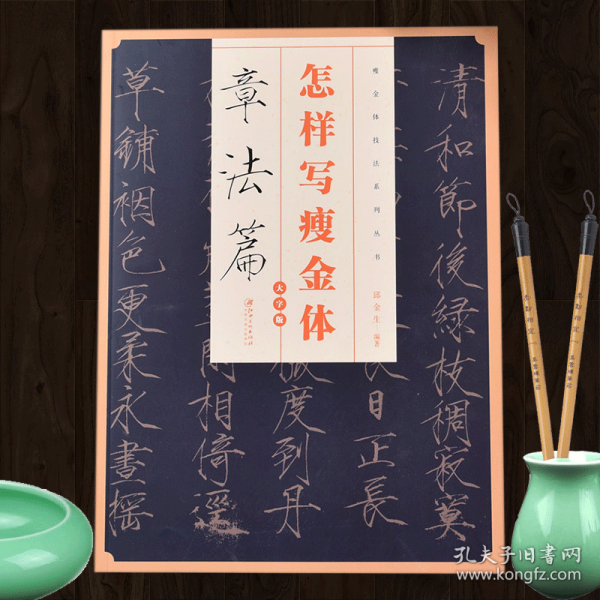 瘦金体技法系列丛书
邱金生 编著
怎样写瘦金体
大字版
章法篇
江西美术出版社
清和節後綠枝稠寂寞
日正長
度到丹
相倚
草鋪裀色更柔永晝搖
孔夫子旧书网
www.kongfz.com